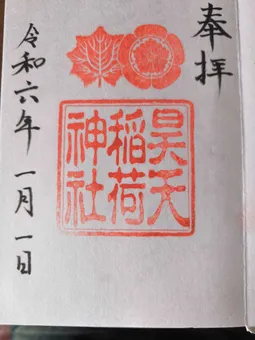 奉拝
昊天
稲荷
神社
令和六年一月一日